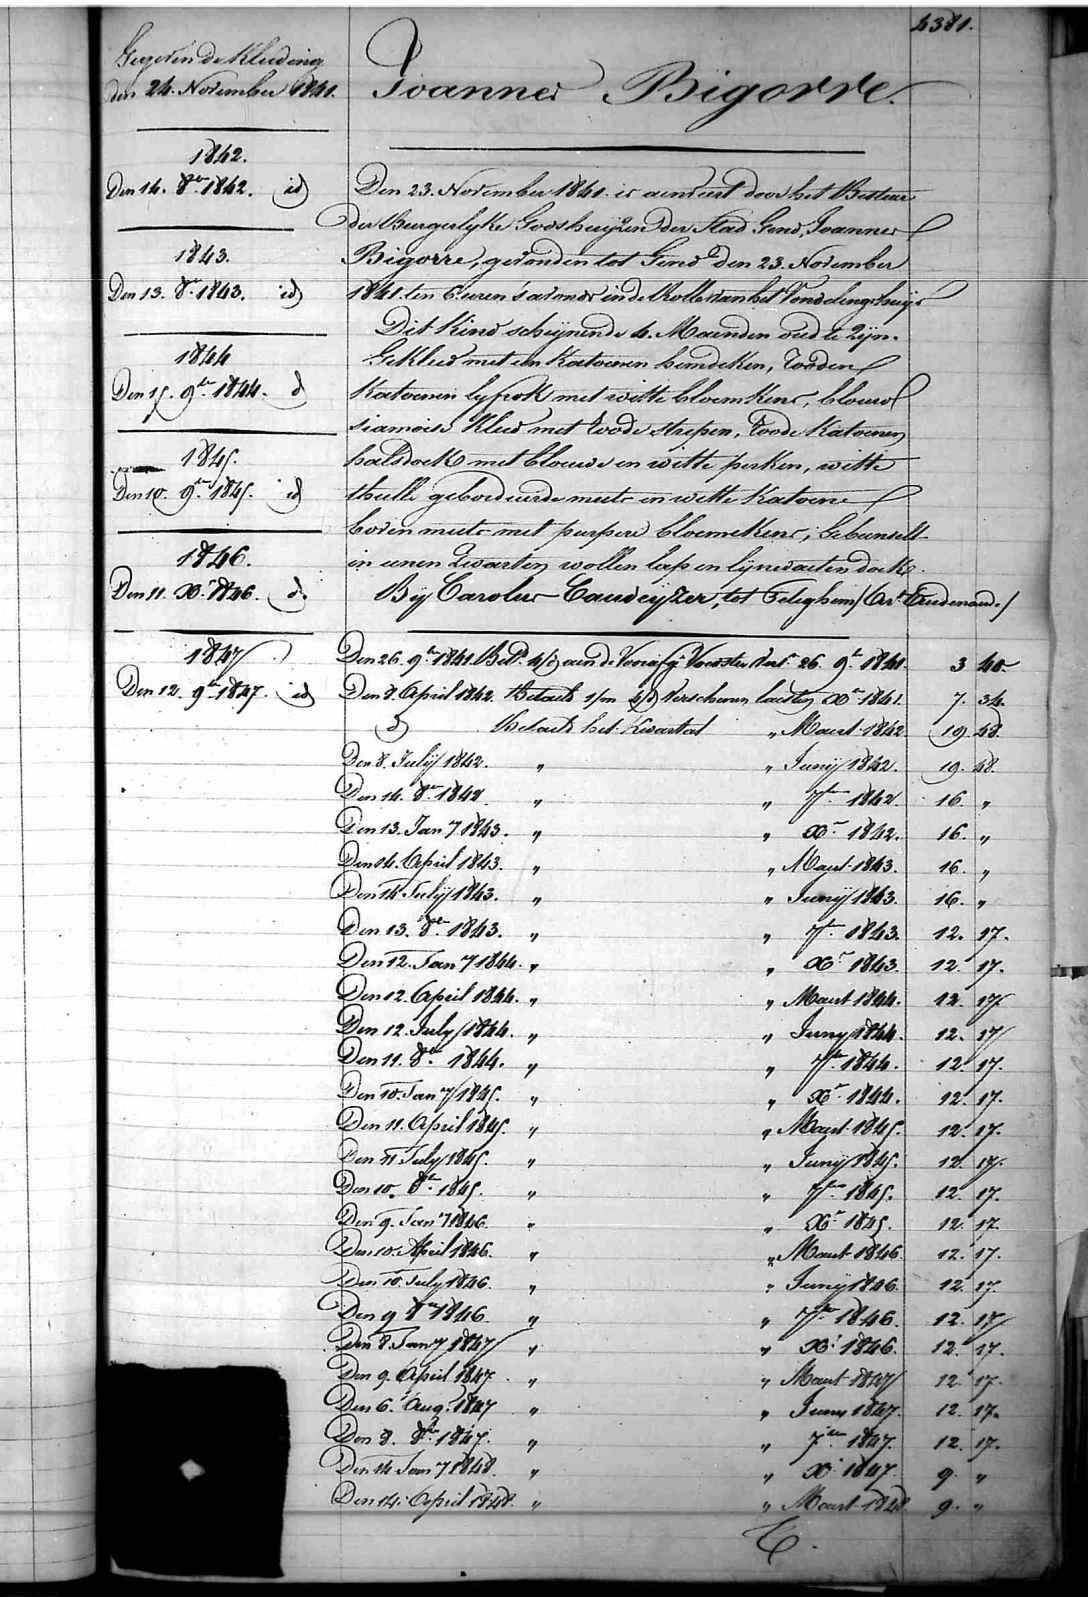 4381.
Gegeven de Kleeding
den 24. November 1841.
Joannes Bigorre.
1842.
Den 14. 8er 1842. id
1843.
Den 13. 8r 1843. id
1844
Den 15. 9er 1844. d
1845.
Den 10. 9er 1845. id
1846.
Den 11. Xr 1846. d.
1847
Den 12. 9er 1847. id
Den 23. November 1841. is aenveert door het Bestuur
der Burgerlyke Godshuyzen der Stad Gend, Joannes
Bigorre, gevonden tot Gend den 23. November
1841. ten 6. uren 's avonds in de Rolle van het Vondelinghuys
Dit Kind schynende 4. Maenden oud te zyn.
Gekleed met een Katoenen hemdeken, rooden
Katoenen lyfrok met witte bloemkens, blauw
siamoise Kleed met roode strepen, roode Katoenen
halsdoek met blauwe en witte perken, witte
thulle geborduerde muts en witte Katoene
boven muts met purpere bloemekens, Gebunselt
in eenen zwarten wollen lap en lynwaeten doek.
Bij Carolus Caudeyzer, tot Eeleghem / Art Audenaarde /
Den 26. 9er 1841. Betd 4/d aen de Voorsz. Voorster Vert 26. 9r 1841. 3 40.
Den 8. April 1842. Betaelt 1/m 4/d verschenen laesten Xer 1841. 7. 34.
d Betaelt het Kwartael " Maert 1842 19. 48.
Den 8. July 1842. " " Juny 1842. 19. 48.
Den 14. 8er 1842 " " 7er 1842. 16. "
Den 13. Jany 1843. " " Xr 1842. 16. "
Den 14. April 1843. " " Maert 1843. 16. "
Den 14 July 1843. " " Juny 1843. 16. "
Den 13. 8er 1843. " " 7r 1843. 12. 17.
Den 12. Jany 1844. " " Xr 1843. 12. 17.
Den 12. April 1844. " " Maert 1844. 12. 17
Den 12. July 1844. " " Juny 1844. 12. 17
Den 11. 8er 1844. " " 7er 1844. 12. 17.
Den 10. Jany 1845. " " Xr 1844. 12. 17.
Den 11. April 1845. " " Maert 1845. 12. 17.
Den 11 July 1845. " " Juny 1845. 12. 17.
Den 10. 8er 1845. " " 7er 1845. 12. 17.
Den 9. Jany 1846. " " Xr 1845. 12. 17.
Den 10. April 1846. " " Maert 1846 12. 17.
Den 10. July 1846. " " Juny 1846. 12. 17.
Den 9 8er 1846. " " 7er 1846. 12. 17
Den 8. Jany 1847 " " Xr 1846. 12. 17.
Den 9. April 1847. " " Maert 1847 12. 17.
Den 6. Aug. 1847 " " Juny 1847. 12. 17.
Den 8. 8er 1847. " " 7er 1847. 12. 17.
Den 14 Jany 1848. " " Xr 1847. 9. "
Den 14. April 1848. " " Maert 1848 9. "